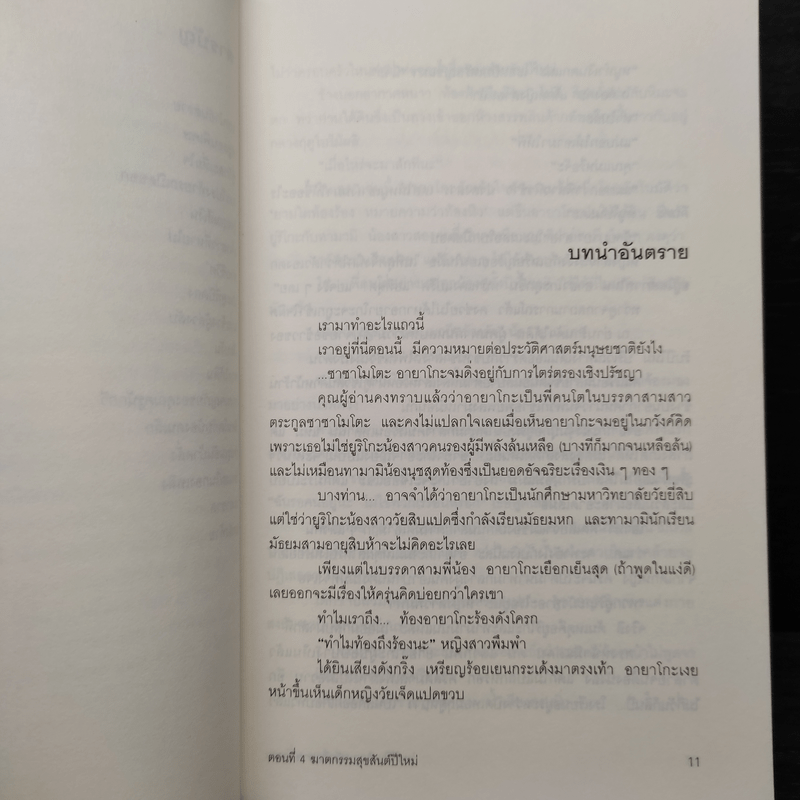 บทนำอันตราย
เรามาทำอะไรแถวนี้
เราอยู่ที่นี่ตอนนี้ มีความหมายต่อประวัติศาสตร์มนุษยชาติยังไง
...ซาซาโมโตะ อายาโกะจมดิ่งอยู่กับการไตร่ตรองเชิงปรัชญา
คุณผู้อ่านคงทราบแล้วว่าอายาโกะเป็นพี่คนโตในบรรดาสามสาว
ตระกูลซาซาโมโตะ และคงไม่แปลกใจเลยเมื่อเห็นอายาโกะจมอยู่ในภวังค์คิด
เพราะเธอไม่ใช่ยูริโกะน้องสาวคนรองผู้มีพลังล้นเหลือ (บางทีก็มากจนเหลือล้น)
และไม่เหมือนทามามิน้องนุชสุดท้องซึ่งเป็นยอดอัจฉริยะเรื่องเงิน ๆ ทอง ๆ
บางท่าน... อาจจำได้ว่าอายาโกะเป็นนักศึกษามหาวิทยาลัยวัยยี่สิบ
แต่ใช่ว่ายูริโกะน้องสาววัยสิบแปดซึ่งกำลังเรียนมัธยมหก และทามามินักเรียน
มัธยมสามอายุสิบห้าจะไม่คิดอะไรเลย
เพียงแต่ในบรรดาสามพี่น้อง อายาโกะเยือกเย็นสุด (ถ้าพูดในแง่ดี)
เลยออกจะมีเรื่องให้ครุ่นคิดบ่อยกว่าใครเขา
ทำไมเราถึง... ท้องอายาโกะร้องดังโครก
“ทำไมท้องถึงร้องนะ” หญิงสาวพึมพำ
ได้ยินเสียงดังกริ๊ง เหรียญร้อยเยนกระเด้งมาตรงเท้า อายาโกะเงย
หน้าขึ้นเห็นเด็กหญิงวัยเจ็ดแปดขวบ
ตอนที่ 4 ฆาตกรรมสุขสันต์ปีใหม่
11